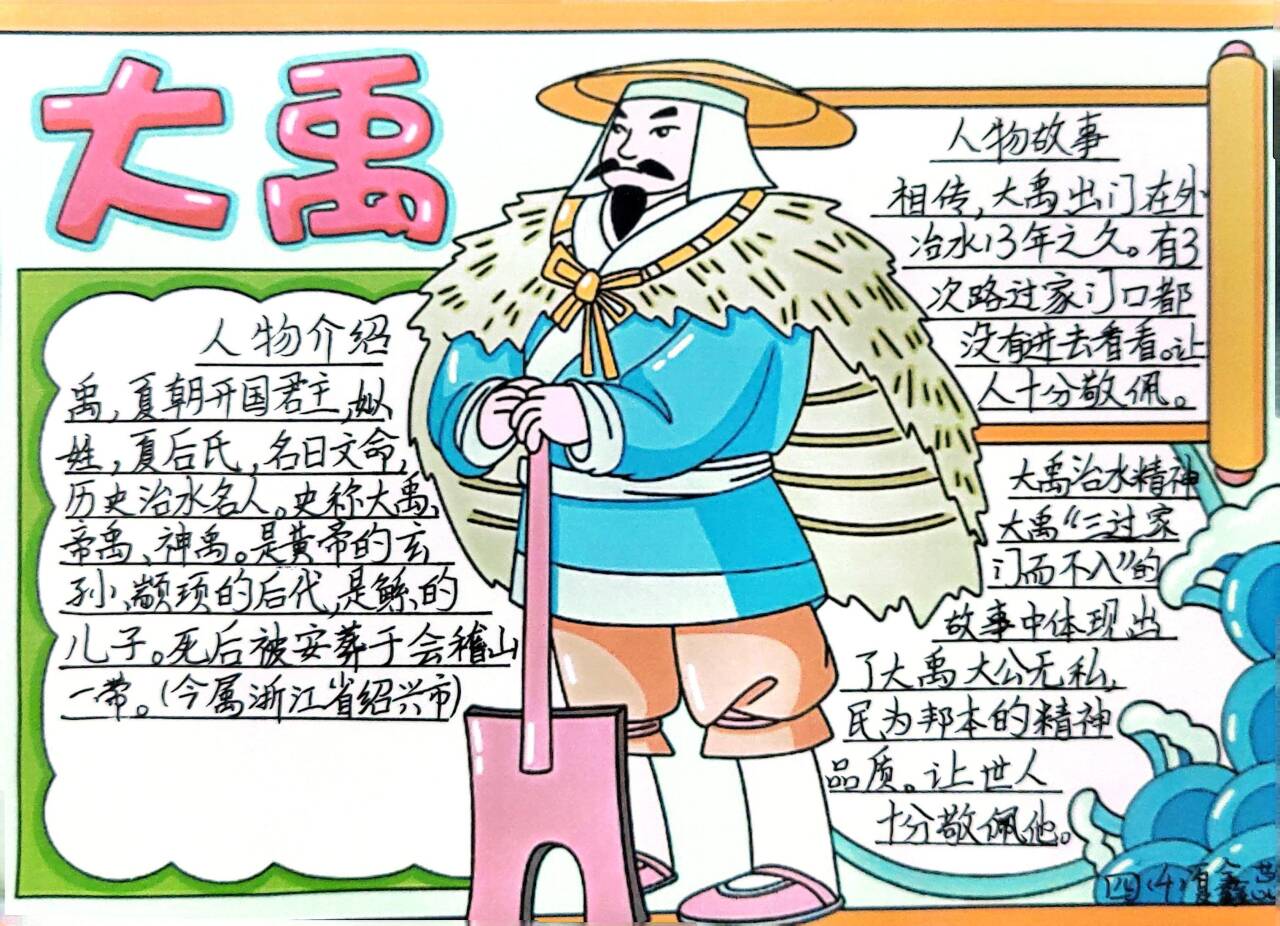 大禹
人物介绍
禹，夏朝开国君主，姒
姓，夏后氏，名曰文命，
历史治水名人。史称大禹，
帝禹、神禹。是黄帝的玄
孙、颛顼的后代，是鲧的
儿子。死后被安葬于会稽山
一带。（今属浙江省绍兴市）
人物故事
相传，大禹出门在外
治水13年之久。有3
次路过家门口都
没有进去看看。让
人十分敬佩。
大禹治水精神
大禹“三过家
门而不入”的
故事中体现出
了大禹大公无私，
民为邦本的精神
品质。让世人
十分敬佩他。
四（4）夏鑫